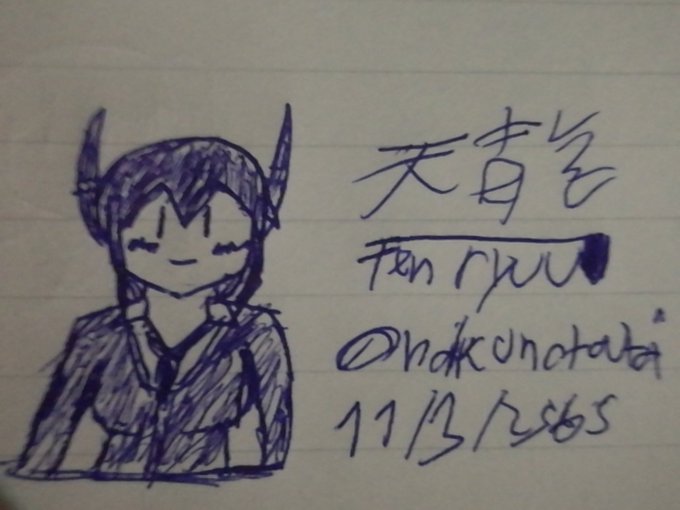 天青竜
Tenryuu
@naikunotatai
11/3/2565